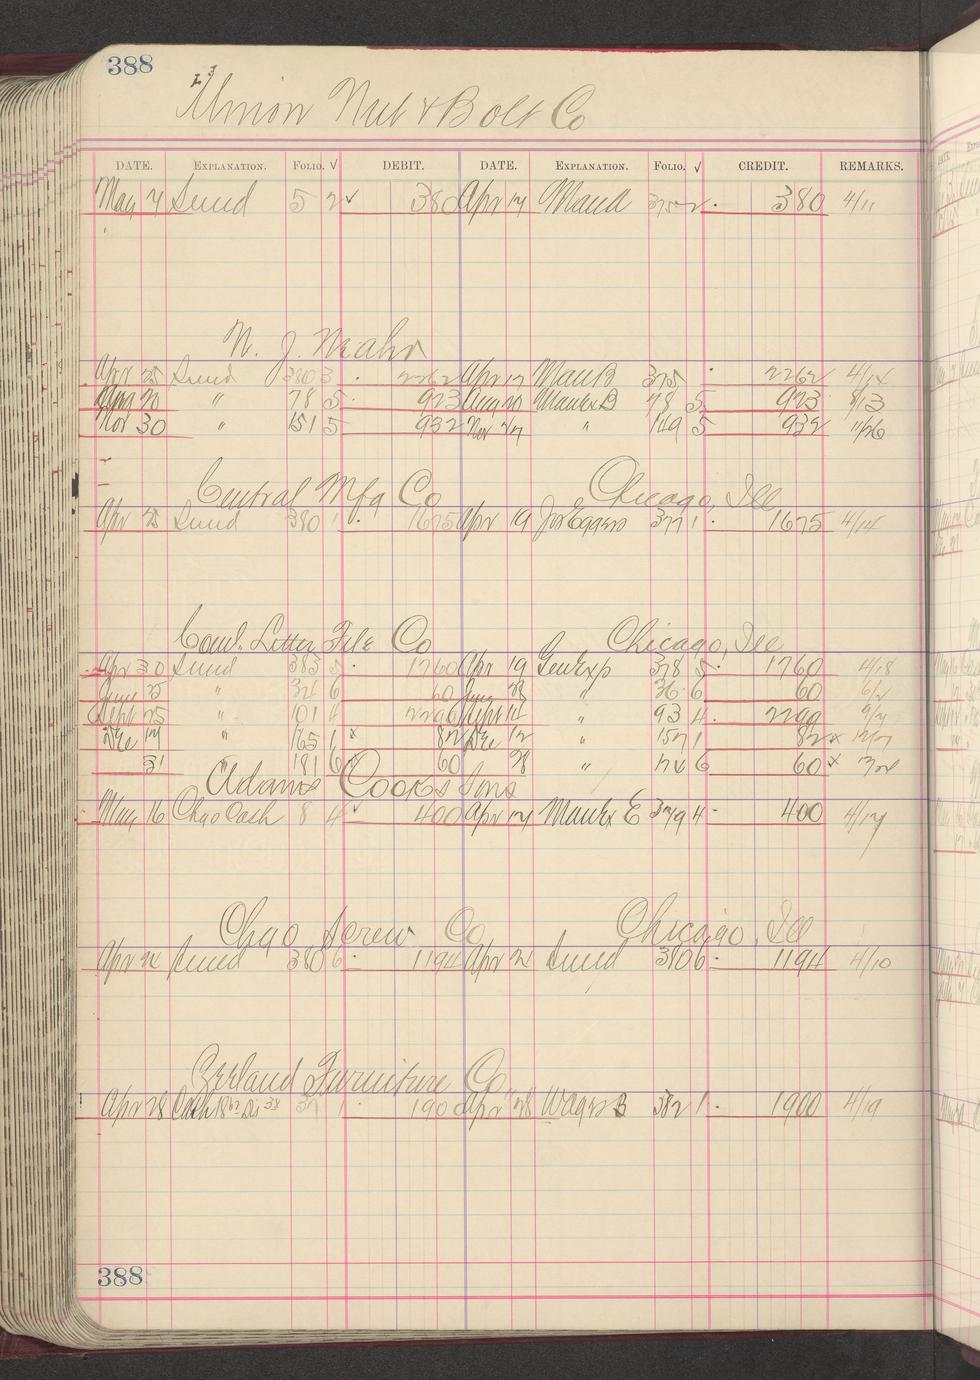 388
Union Nut & Bolt Co
DATE. EXPLANATION. FOLIO. √ DEBIT. DATE. EXPLANATION. FOLIO. √ CREDIT. REMARKS.
May 7 Sund 5 2 ✓ 380 Apr 17 Mand 375 2 380 4/11
N. J.
Apr 25 Sund 380 3 2262 Apr 17 Man B 375 2262 4/14
Aug 20 " 78 5 923 Aug 20 Manex B 78 5 923 8/13
Nov 30 " 151 5 932 Nov 27 " 149 5 932 11/26
Central Mfg Co Chicago, Ill
Apr 25 Sund 380 1 1675 Apr 19 Jos Eggers 377 1 1675 4/14
Coml. Letter File Co Chicago, Ill
Apr 30 Sund 383 5 1760 Apr 19 Gen Exp 378 5 1760 4/18
June 5 " 6 60 June 28 " 36 6 60 6/2
Sept 25 " 101 4 2299 Sept 14 " 93 4 2299 9/7
Dec 17 " 165 1 x 82 Dec 12 " 157 1 82 x 12/7
31 181 6 60 28 " 6 60 x
Adams Cooks Sons
May 16 Chgo Cash 8 4 ✓ 400 Apr 17 Manex E 379 4 400 4/17
Chgo Screw Co Chicago, Ill
Apr 24 Sund 380 6 1194 Apr 24 Sund 380 6 1194 4/10
Zeeland Furniture Co
Apr 28 Cash 1862 Dis 38 37 1 1900 Apr 28 Wages B 382 1 1900 4/19
388